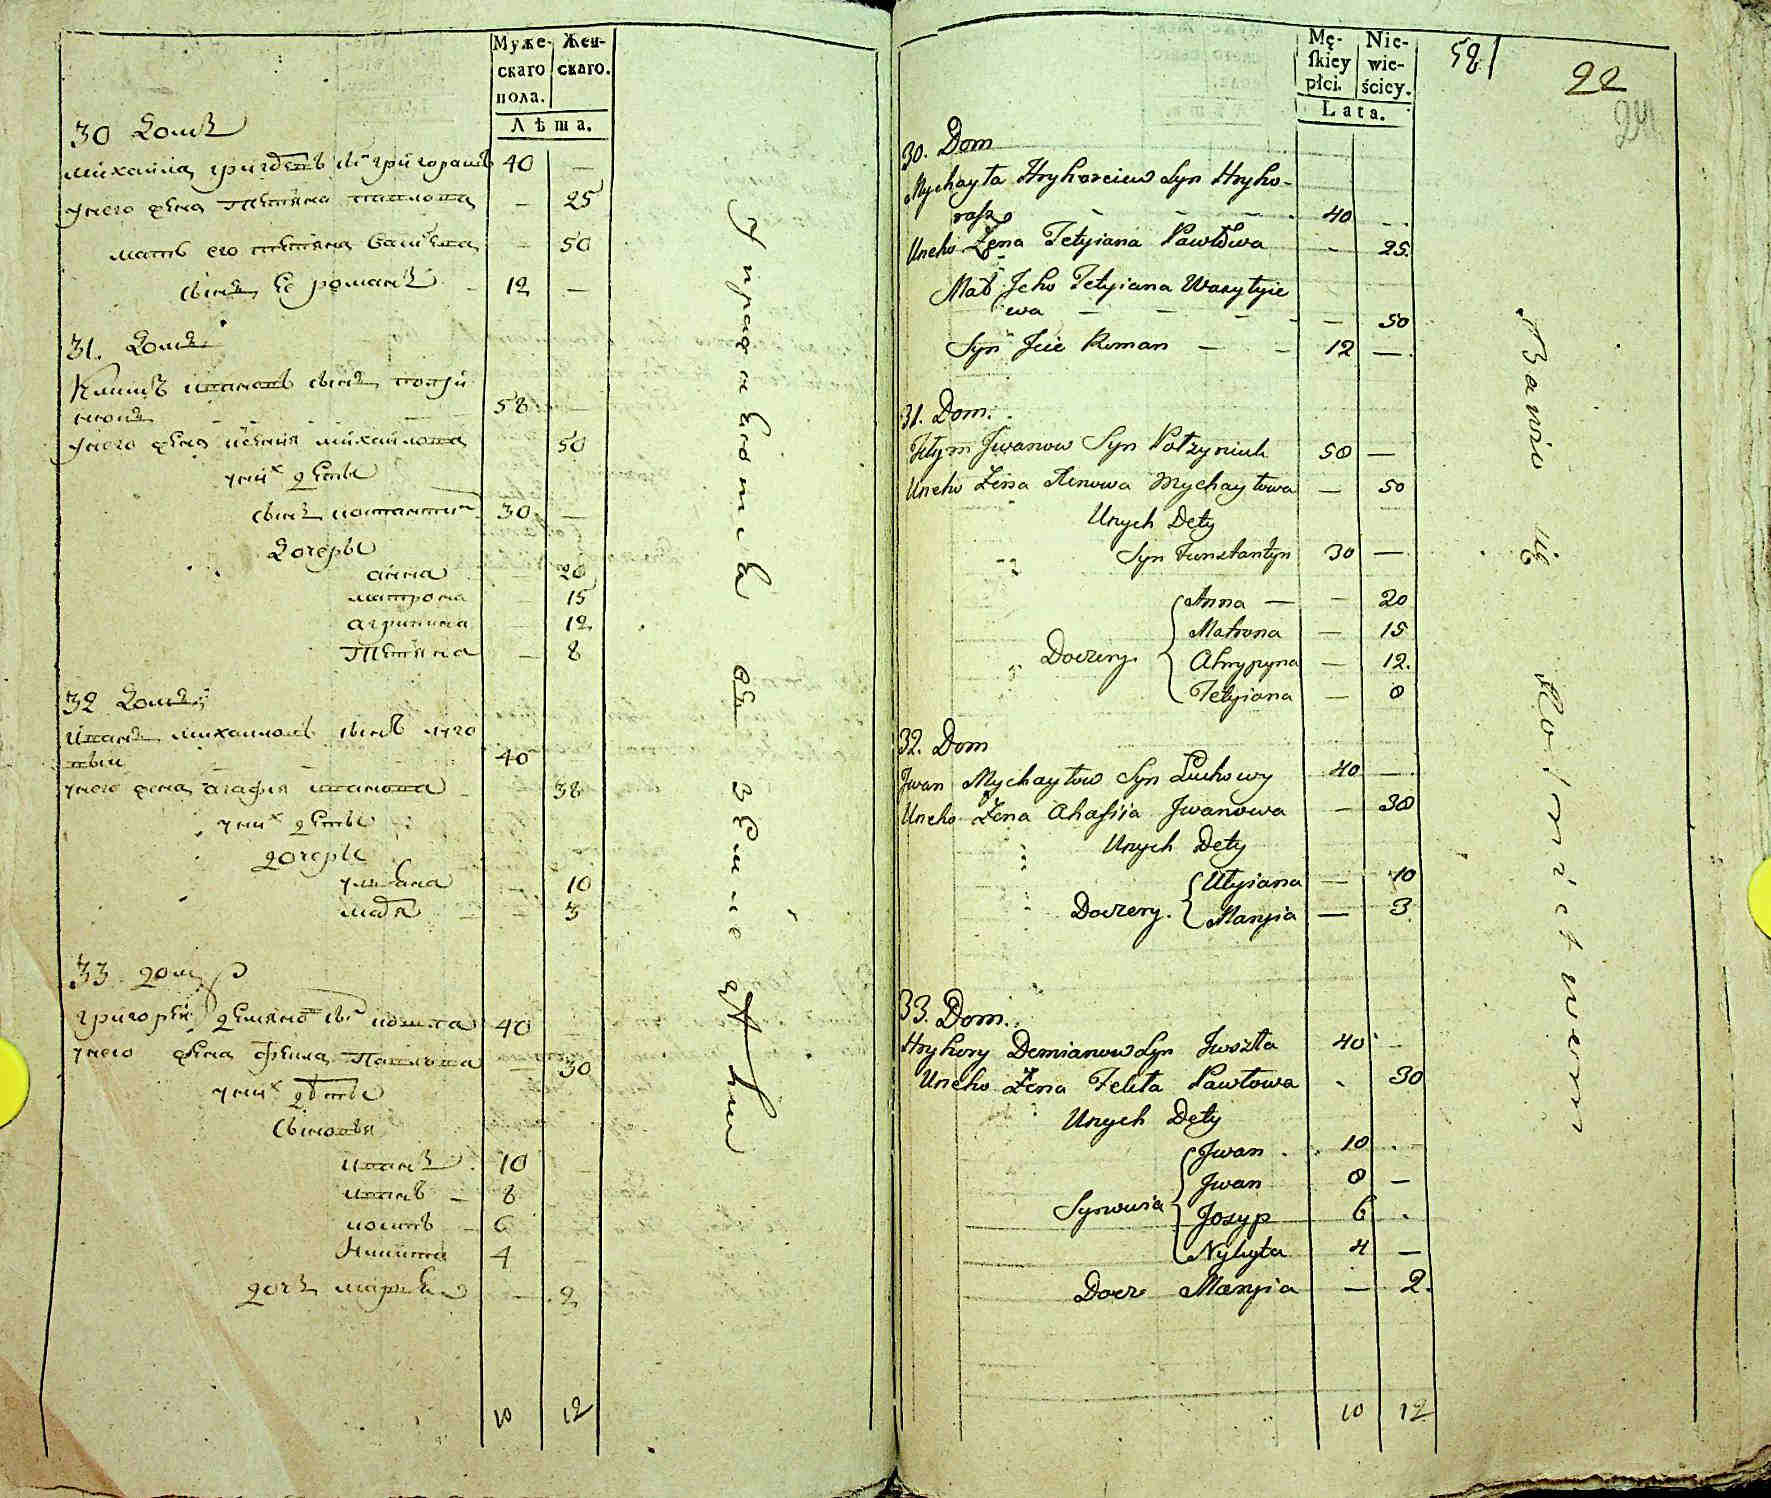 Муже-
скаго
пола.
Жен-
скаго.
Лѣта.
30 домъ
михайла григоревъ сн григорашъ 40 —
у него жена татияна павлова — 25
мать его татияна василева — 50
сынъ ее романъ 12 —
31. домъ
Климъ ивановъ сынъ
58 —
у него жена ксения михайлова 50
у них дети
сынъ костантин 30 —
дочеры
анна — 20
матрона — 15
агрипина 12
Татияна — 8
32 домъ
иванъ михаиловъ сынъ луго
вый 40
у него жена агафия иванова 38
у них дети
дочеры
ульяна — 10
маря — 3
33 домъ
григорей демянов сн ившка 40
у него жена фекла Павлова — 30
у них дети
сыновья
иванъ 10
иванъ — 8
иосипъ 6
Никита 4
дочь марья — 2
10 12
Упражняется въ земледѣлии
Mę-
skiey
płci.
Nie-
wie-
ścicy.
Lata.
58
22
24
30. Dom
Mychayła Hryhorciew Syn Hryho-
rasz — — — 40 —
Uneho Żena Tetyiana Pawłowa - 25.
Mat Jeho Tetyiana Wasylyie
wa — — — — 50
Syn Jeie Roman — — 12 —
31. Dom.
Kłym Jwanow Syn Potzyniuk 58 —
Uneho Żena Xenowa Mychayłowa — 50
Unych Dety
Syn Kunstantyn 30 —
Anna — — 20
Matrona — 15
Doczery. Ahrypyna — 12.
Tetyiana — 8
32. Dom
Jwan Mychayłow Syn Łuhowy 40 —
Uneho Żena Ahafiia Jwanowa — 38
Unych Dety
Ulyiana — 10
Doczery. Maryia — 3
33. Dom.
Hryhory Demianow Syn Jwszka 40 -
Uneho Żena Fekła Pawłowa - 30
Unych Dety
Jwan . 10 . -
Jwan 8 —
Synwuia Josyp 6 .
Nykyta 4 —
Docz Maryia — 2.
10 12
Bawio się Rolnictwem